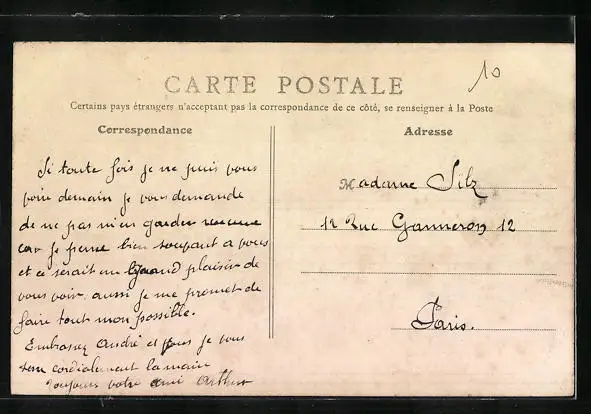 10
CARTE POSTALE
Certains pays étrangers n'acceptant pas la correspondance de ce côté, se renseigner à la Poste
Correspondance
Si toute fois je ne puis vous
voir demain je vous demande
de ne pas m'en garder rancune
car je pense bien souvant a vous
et ce serait un grand plaisir de
vous voir. aussi je me promet de
faire tout mon possible.
Embrassez André et je vous
serre cordialement la main
Toujours votre ami Arthur
Adresse
Madame Silz
12 Rue Ganneron 12
Paris.